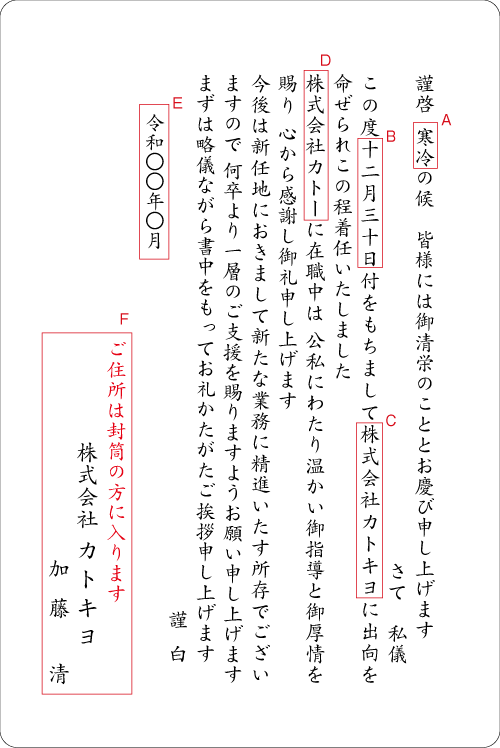 謹啓 寒冷の候 皆様には御清栄のこととお慶び申し上げます
さて 私儀
この度十二月三十日付をもちまして株式会社カトキヨに出向を
命ぜられこの程着任いたしました
株式会社カトーに在職中は 公私にわたり温かい御指導と御厚情を
賜り 心から感謝し御礼申し上げます
今後は新任地におきまして新たな業務に精進いたす所存でござい
ますので 何卒より一層のご支援を賜りますようお願い申し上げます
まずは略儀ながら書中をもってお礼かたがたご挨拶申し上げます
謹白
令和〇〇年〇月
ご住所は封筒の方に入ります
株式会社 カトキヨ
加藤 清
A
B
C
D
E
F